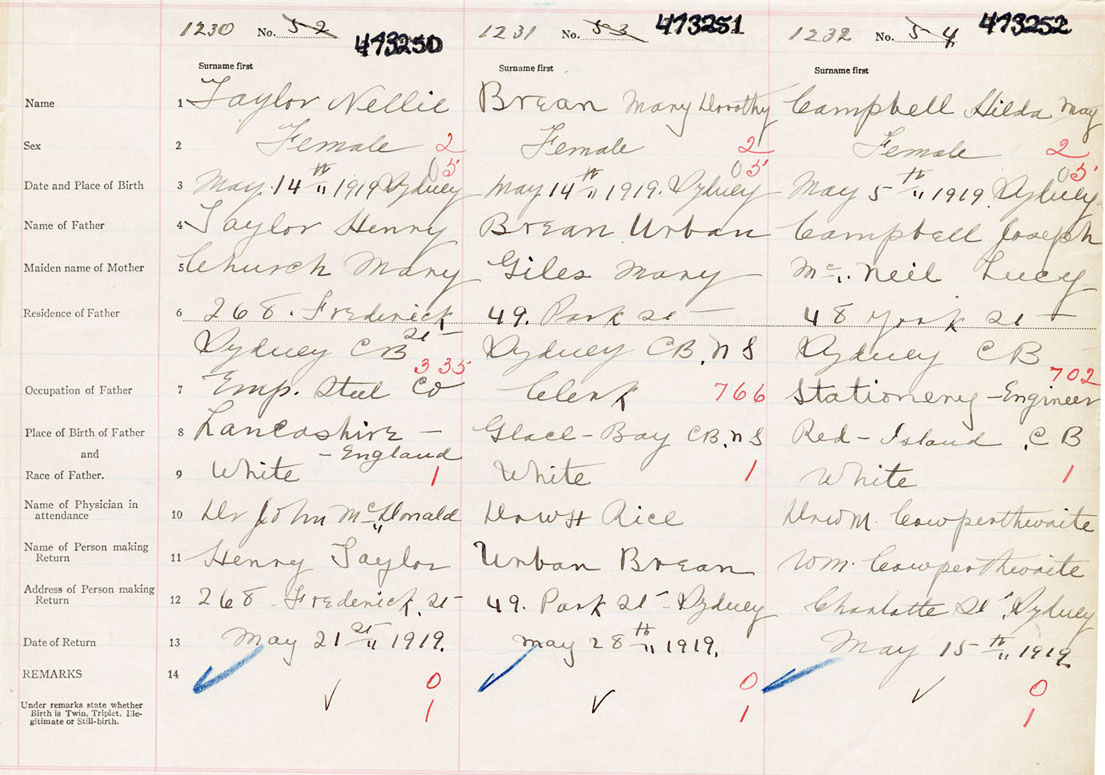 1230 No. 52 473250 1231 No. 53 473251 1232 No. 54 473252
Surname first Surname first Surname first
Name 1 Taylor Nellie Brean Mary Dorothy Campbell Hilda May
Sex 2 Female 2 Female 2 Female 2
05 05 05
Date and Place of Birth 3 May 14th 1919 Sydney May 14th 1919. Sydney May 5th 1919 Sydney
Name of Father 4 Taylor Henry Brean Urban Campbell Joseph
Maiden name of Mother 5 Church Mary Giles Mary Mc. Neil Lucy
Residence of Father 6 268. Frederick St 49. Park St 48 York St
Sydney CB Sydney CB, NS Sydney CB
335 766 702
Occupation of Father 7 Emp. Steel Co Clerk Stationery-Engineer
Place of Birth of Father 8 Lancashire - Glace-Bay CB, NS Red-Island, CB
and - England
Race of Father. 9 White 1 White 1 White 1
Name of Physician in
attendance 10 Dr John McDonald Dr WH Rice Dr WM. Cowperthwaite
Name of Person making
Return 11 Henry Taylor Urban Brean Wm. Cowperthwaite
Address of Person making
Return 12 268. Frederick, St 49. Park St Sydney Charlotte St, Sydney
Date of Return 13 May 21st 1919. May 28th 1919. May 15th 1919
REMARKS 14 0 0 0
Under remarks state whether
Birth is Twin, Triplet, Ille-
gitimate or Still-birth. 1 1 1